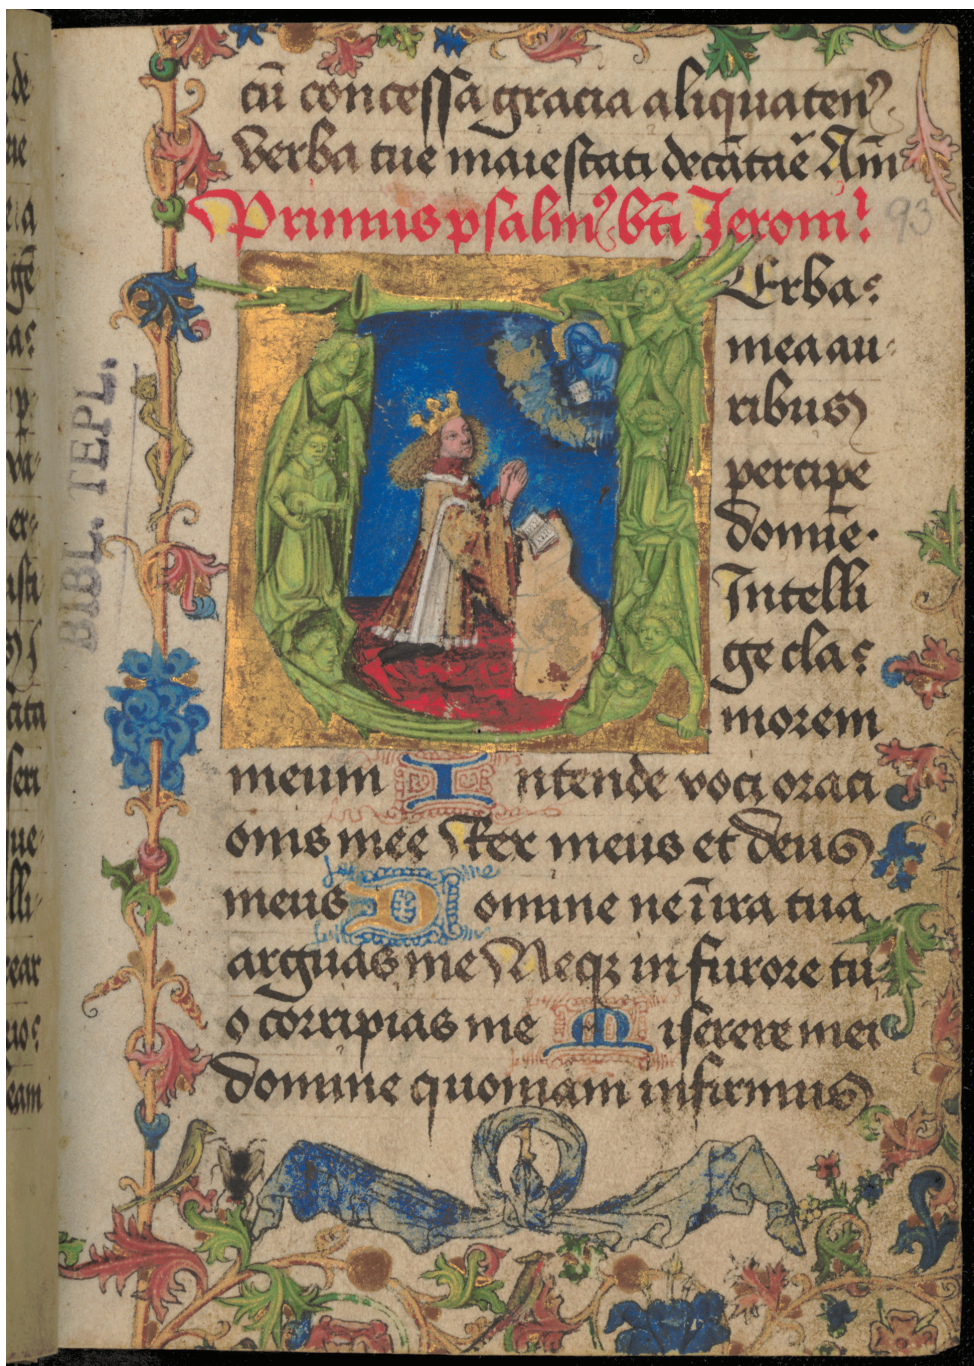 cū concessa gracia aliquatenꝰ
verba tue maiestati decātaꝛē Am̄
Primus psalmꝰ bt̄i Jeronī
93
Erba
mea au
ribus
percipe
domīe·
Intelli
ge cla
morem
meum Intende voci oraci
onis mee Rex meus et deus
meus Domine ne ī ira tua
arguas me Neqꝫ in furore tu
o corripias me Miserere mei
domine quoniam infirmus
BIBL. TEPL.